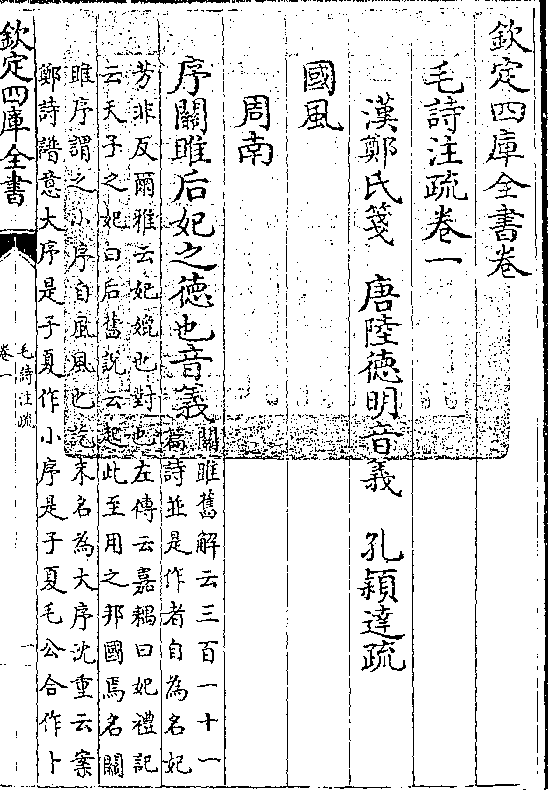 欽定四庫全書卷
毛詩注疏卷一
漢鄭氏箋　唐陸德明音義　孔穎達疏
國風
周南
序關雎后妃之德也音義
關雎舊解云三百一十一
篇詩並是作者自為名妃
芳非反爾雅云妃媲也對也左傳云嘉耦曰妃禮記
云天子之妃曰后舊說云起此至用之邦國焉名關
雎序謂之小序自風風也訖末名為大序沈重云案
鄭詩譜意大序是子夏作小序是子夏毛公合作卜
欽定四庫全書
毛詩注疏
卷一
一